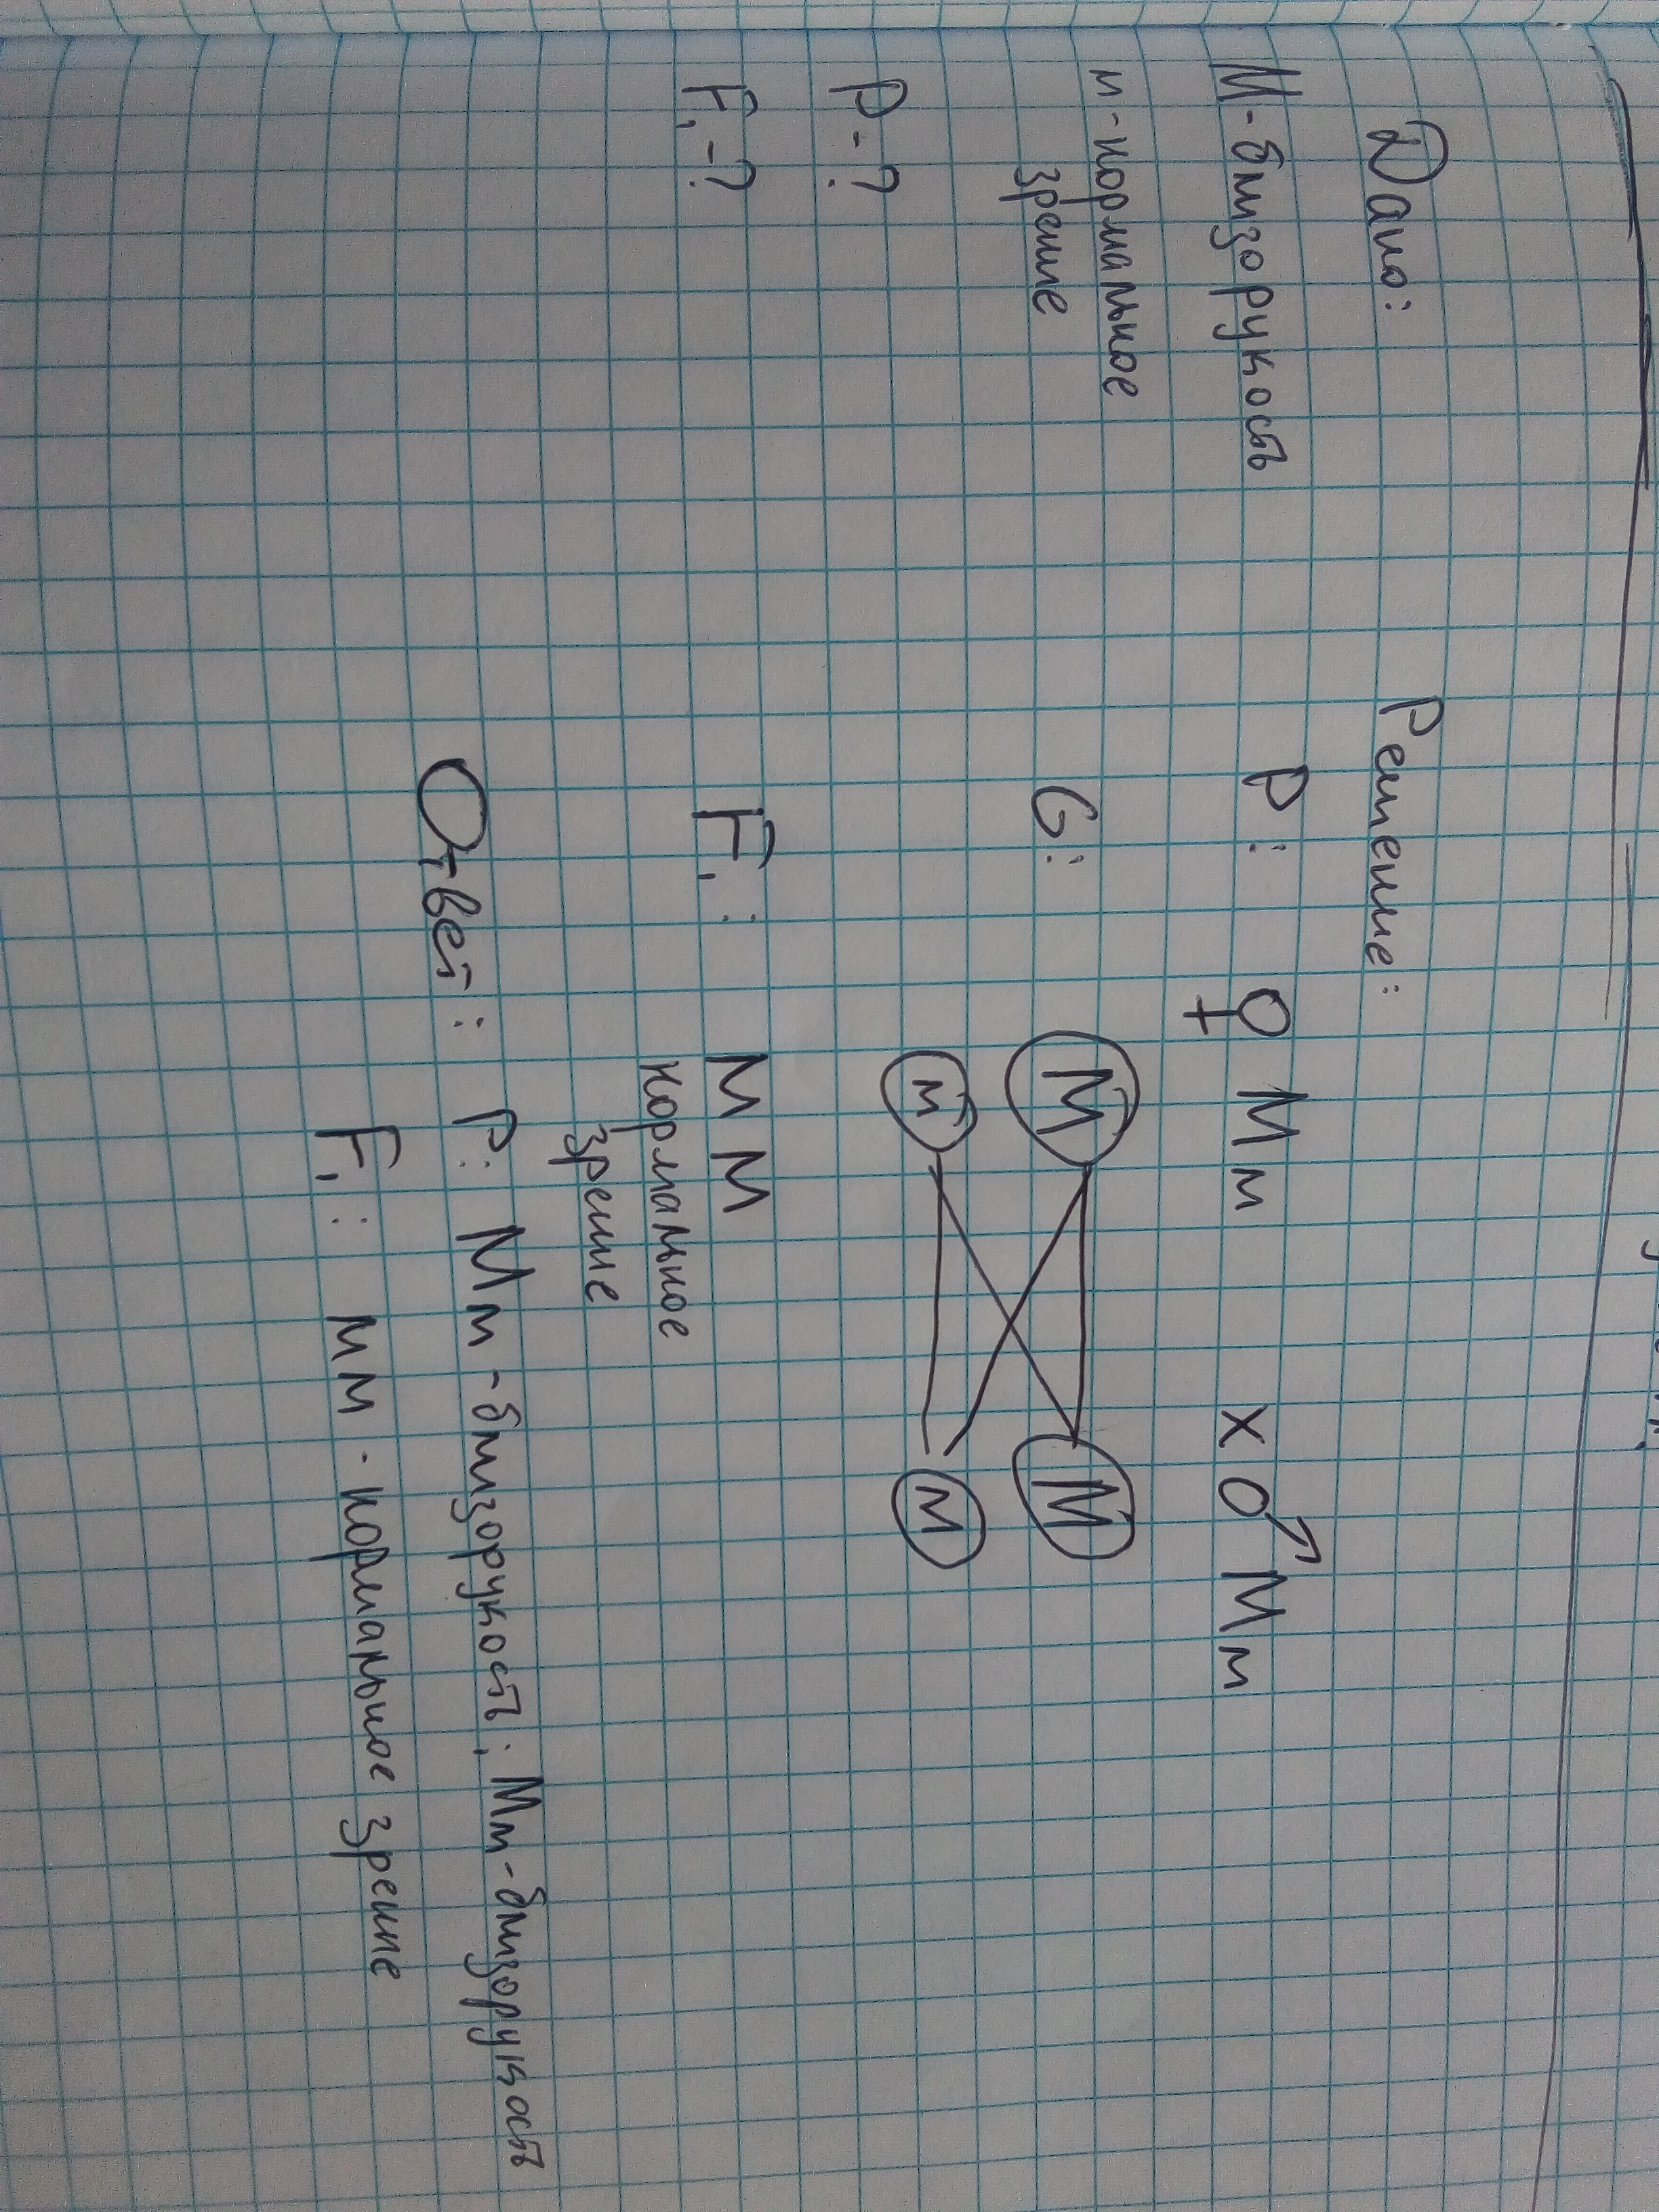 Дано:
М - близорукость
м - нормальное
зрение
Р - ?
F₁ - ?
Решение:
Р: ♀ Мм х ♂ Мм
G: М М
м м
F₁: мм
нормальное
зрение
Ответ: Р: Мм - близорукость; Мм - близорукость
F₁: мм - нормальное зрение